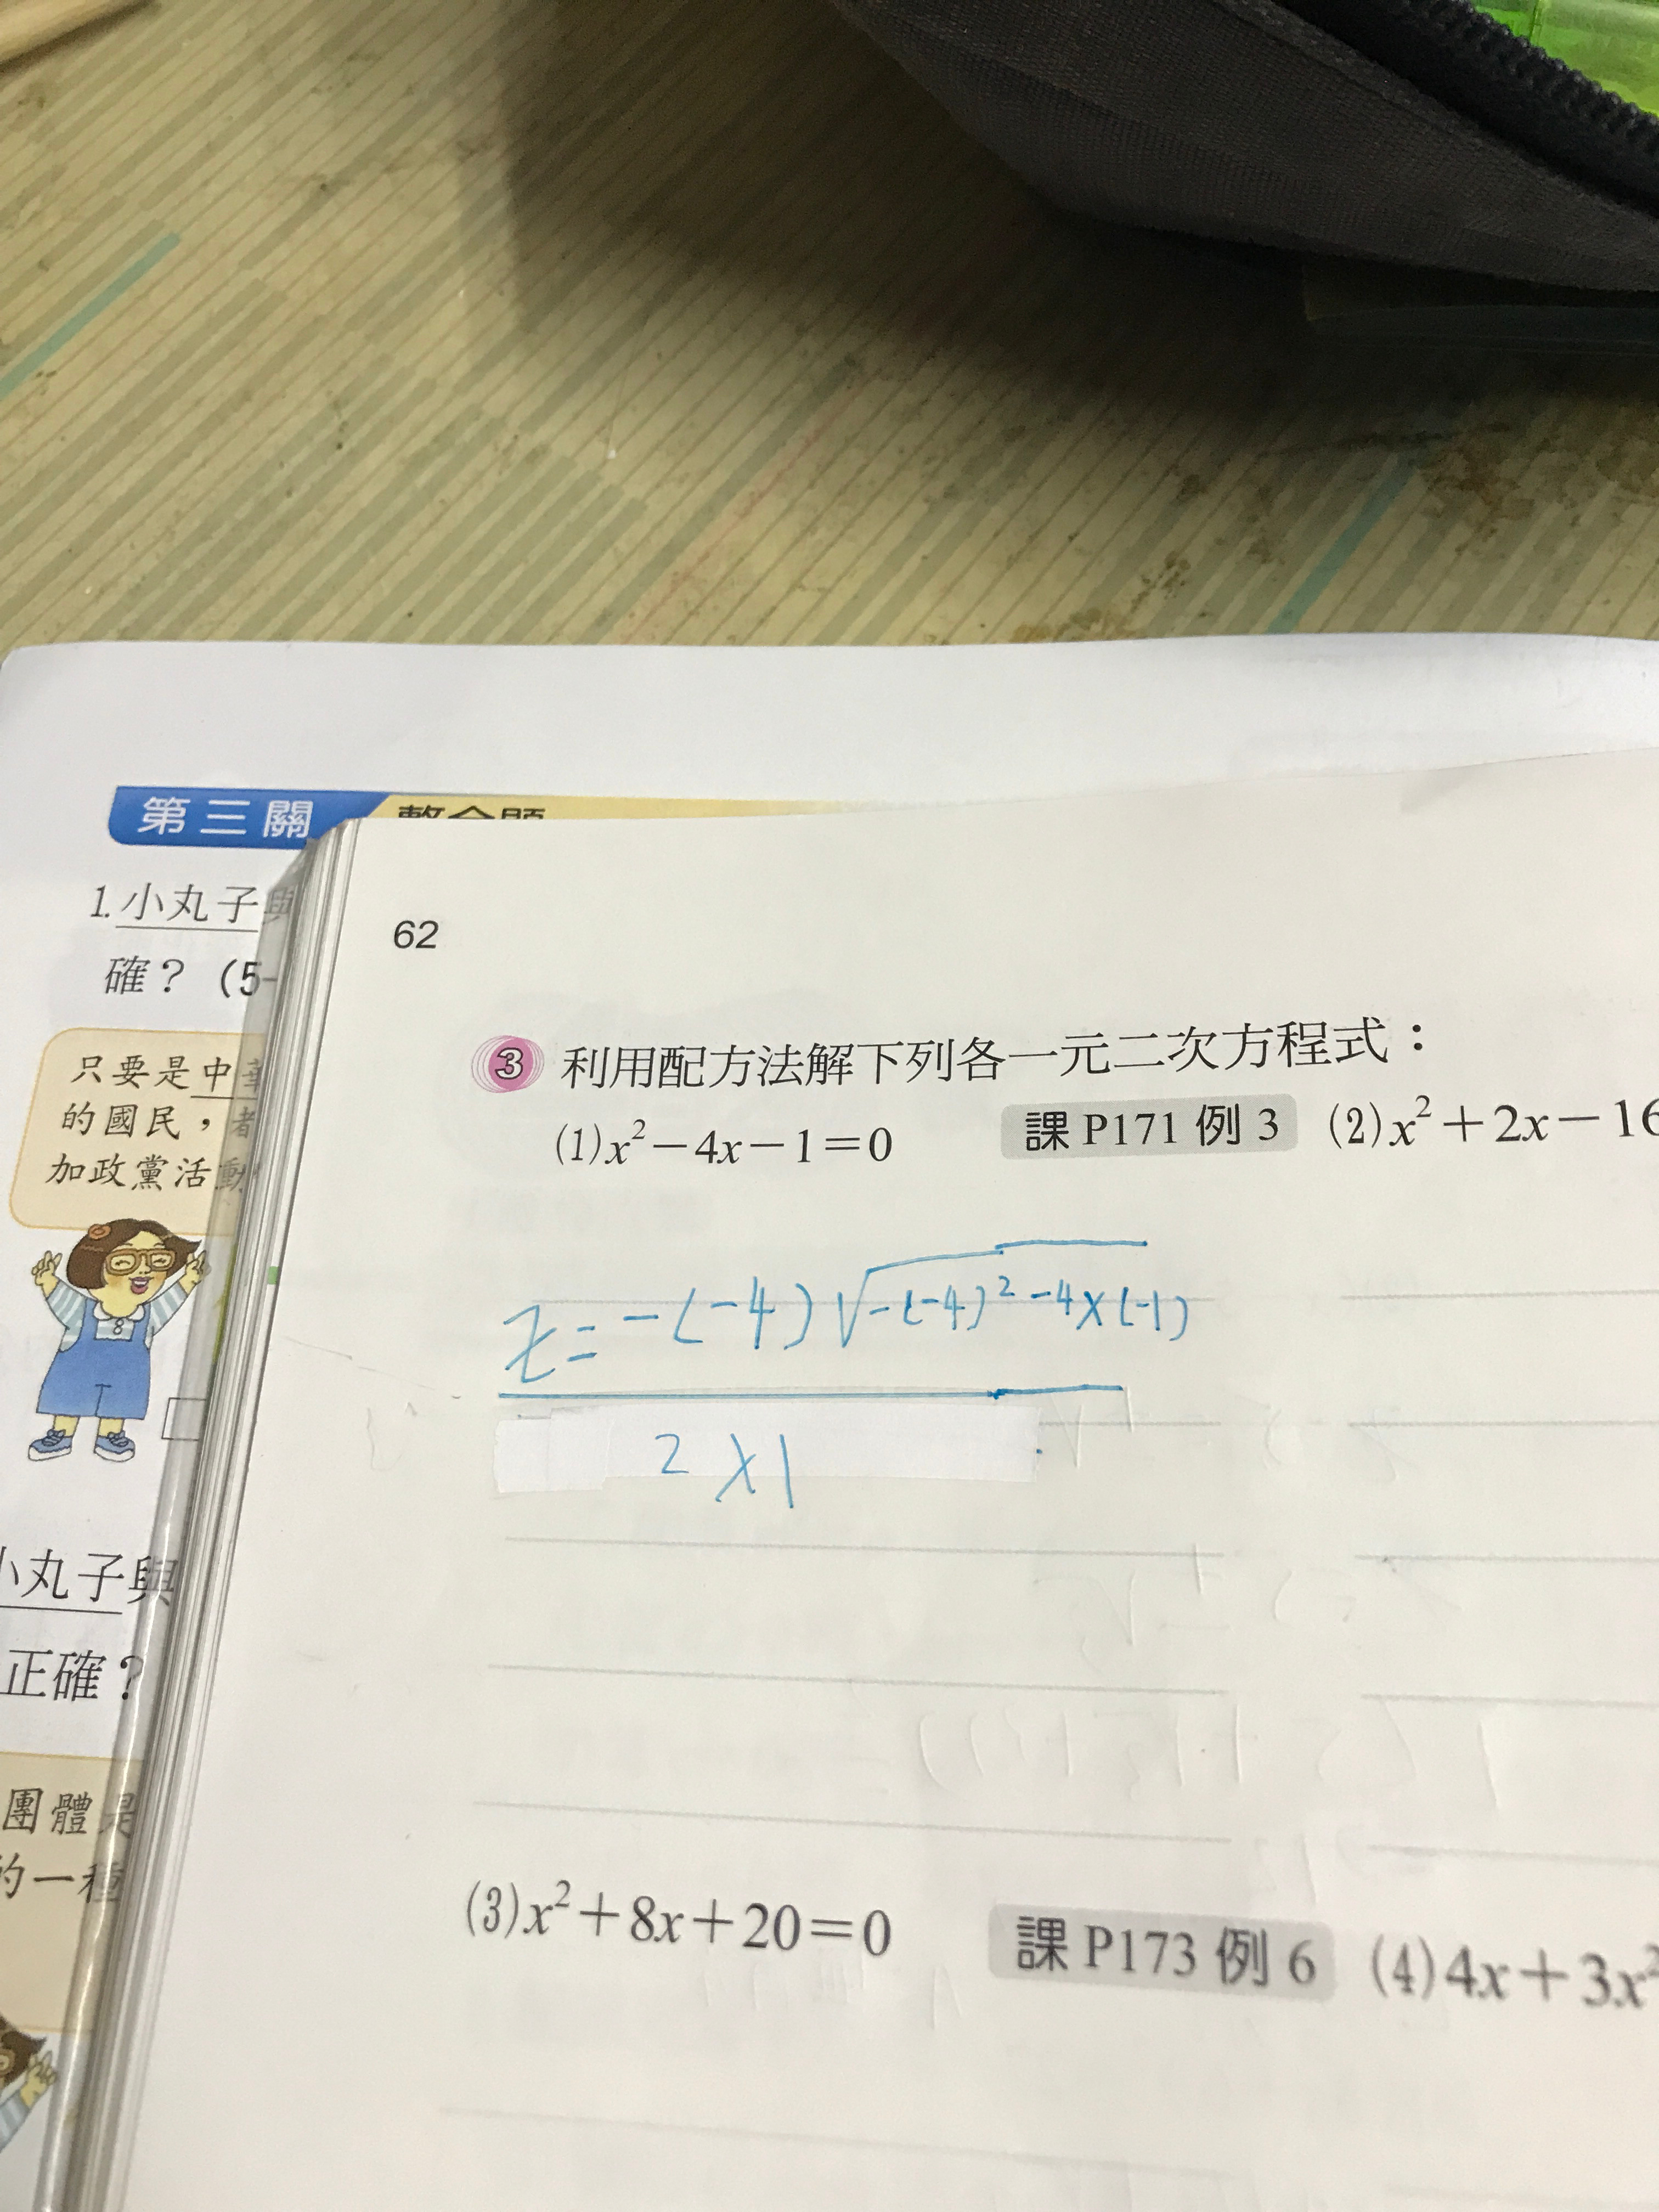 第三關
1. 小丸子
確？ (5-
只要是中華
的國民，者
加政黨活動
小丸子與
正確？
團體是
的一種
62
3 利用配方法解下列各一元二次方程式：
(1)x²－4x－1＝0 課 P171 例 3 (2)x²＋2x－16
x=-(-4)√-(-4)²-4×(-1)
2×1
(3)x²＋8x＋20＝0 課 P173 例 6 (4)4x＋3x²